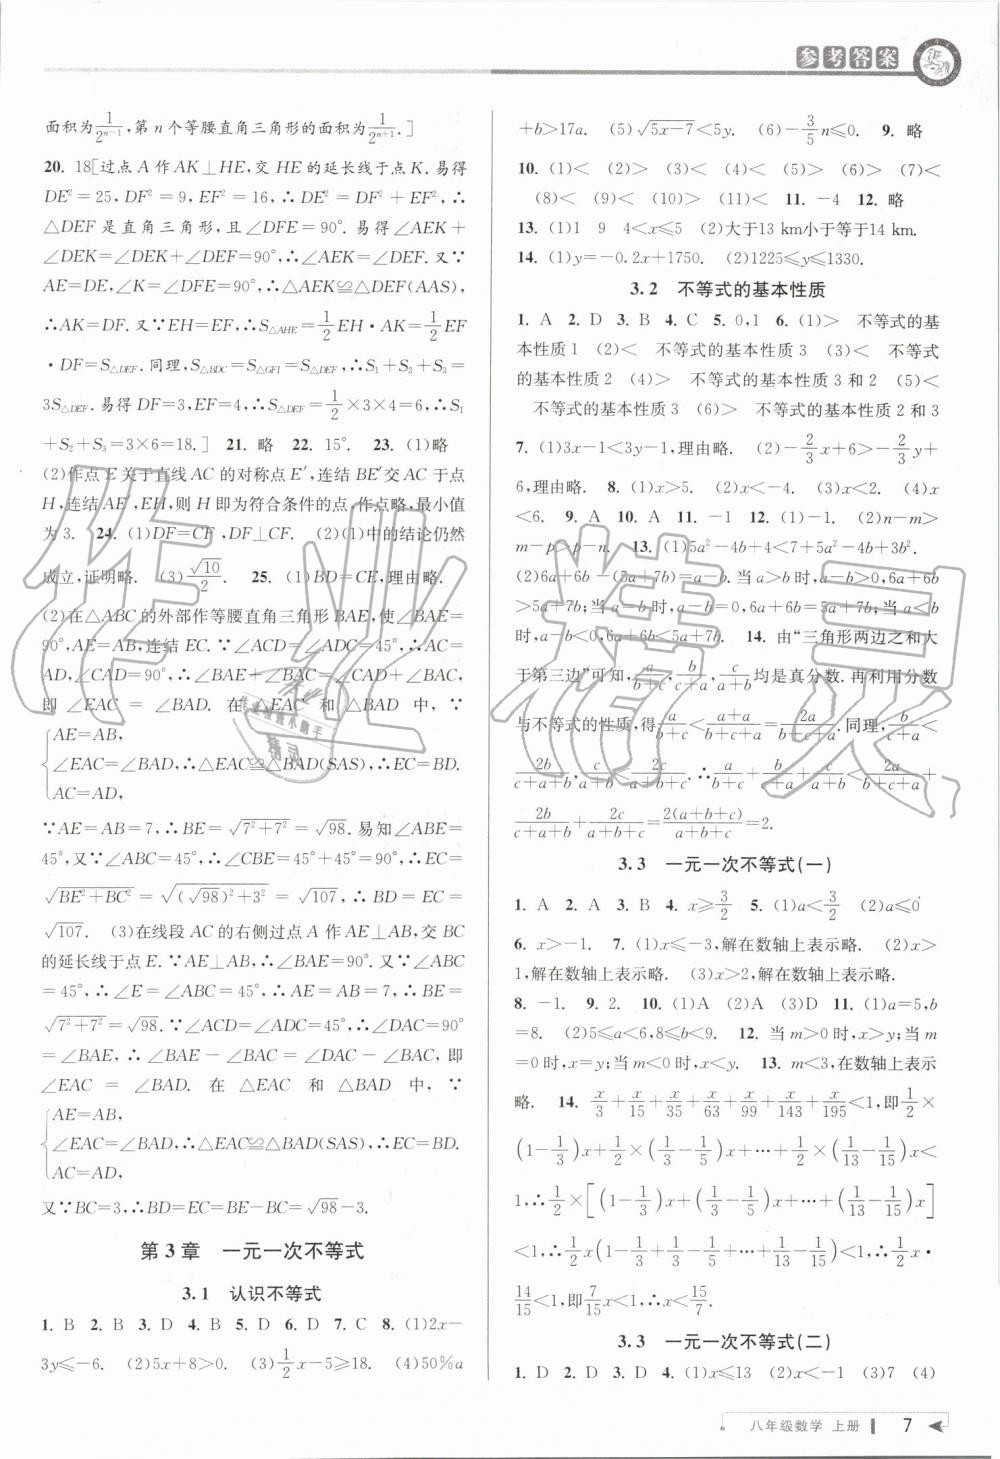 参考答案
面积为1/2^(n-1),第 n 个等腰直角三角形的面积为1/2^(n+1).]
20. 18[过点 A 作 AK⊥HE,交 HE 的延长线于点 K.易得
DE²=25,DF²=9,EF²=16,∴DE²=DF²+EF²,∴
△DEF 是直角三角形,且∠DFE=90°.易得∠AEK+
∠DEK=∠DEK+∠DEF=90°,∴∠AEK=∠DEF.又∵
AE=DE,∠K=∠DFE=90°,∴△AEK≌△DEF(AAS),
∴AK=DF.又∵EH=EF,∴S△AHE=1/2EH·AK=1/2EF
·DF=S△DEF.同理,S△BDC=S△GFI=S△DEF,∴S₁+S₂+S₃=
3S△DEF.易得 DF=3,EF=4,∴S△DEF=1/2×3×4=6,∴S₁
+S₂+S₃=3×6=18.] 21. 略 22. 15°. 23. (1)略
(2)作点 E 关于直线 AC 的对称点 E′,连结 BE′交 AC 于点
H,连结 AE′,EH,则 H 即为符合条件的点,作点略,最小值
为 3. 24. (1)DF=CF,DF⊥CF. (2)(1)中的结论仍然
成立,证明略. (3)√10/2. 25. (1)BD=CE,理由略.
(2)在△ABC 的外部作等腰直角三角形 BAE,使∠BAE=
90°,AE=AB,连结 EC.∵∠ACD=∠ADC=45°,∴AC=
AD,∠CAD=90°,∴∠BAE+∠BAC=∠CAD+∠BAC,
即∠EAC=∠BAD. 在△EAC 和△BAD 中,∵
AE=AB,
∠EAC=∠BAD,∴△EAC≌△BAD(SAS),∴EC=BD.
AC=AD,
∵AE=AB=7,∴BE=√(7²+7²)=√98.易知∠ABE=
45°,又∵∠ABC=45°,∴∠CBE=45°+45°=90°,∴EC=
√(BE²+BC²)=√((√98)²+3²)=√107,∴BD=EC=
√107. (3)在线段 AC 的右侧过点 A 作 AE⊥AB,交 BC
的延长线于点 E.∵AE⊥AB,∴∠BAE=90°.又∵∠ABC
=45°,∴∠E=∠ABC=45°,∴AE=AB=7,∴BE=
√(7²+7²)=√98.∵∠ACD=∠ADC=45°,∴∠DAC=90°
=∠BAE,∴∠BAE-∠BAC=∠DAC-∠BAC,即
∠EAC=∠BAD. 在△EAC 和△BAD 中,∵
AE=AB,
∠EAC=∠BAD,∴△EAC≌△BAD(SAS),∴EC=BD.
AC=AD,
又∵BC=3,∴BD=EC=BE-BC=√98-3.
第 3 章 一元一次不等式
3.1 认识不等式
1. B 2. B 3. D 4. B 5. D 6. D 7. C 8. (1)2x-
3y≤-6. (2)5x+8>0. (3)1/2x-5≥18. (4)50%a
+b>17a. (5)√(5x-7)<5y. (6)-3/5n≤0. 9. 略
10. (1)< (2)> (3)< (4)< (5)> (6)> (7)<
(8)< (9)> (10)< (11)< 11. -4 12. 略
13. (1)1 9 4<x≤5 (2)大于13 km小于等于14 km.
14. (1)y=-0.2x+1750. (2)1225≤y≤1330.
3.2 不等式的基本性质
1. A 2. D 3. B 4. C 5. 0,1 6. (1)> 不等式的基
本性质 1 (2)< 不等式的基本性质 3 (3)< 不等式
的基本性质 2 (4)> 不等式的基本性质 3 和 2 (5)<
不等式的基本性质 3 (6)> 不等式的基本性质 2 和 3
7. (1)3x-1<3y-1,理由略. (2)-2/3x+6>-2/3y+
6,理由略. 8. (1)x>5. (2)x<-4. (3)x<2. (4)x
<6. 9. A 10. A 11. -1 12. (1)-1. (2)n-m>
m-p>p-n. 13. (1)5a²-4b+4<7-4b+3b².
(2)6a+6b-(5a+7b)=a-b.当 a>b 时,a-b>0,6a+6b
>5a+7b;当 a=b 时,a-b=0,6a+6b=5a+7b;当 a<b
时,a-b<0,6a+6b<5a+7b. 14. 由“三角形两边之和大
于第三边”可知,a/(b+c),b/(c+a),c/(a+b)均是真分数.再利用分数
与不等式的性质,得a/(b+c)<(a+a)/(b+c+a)=2a/(b+c+a).同理,b/(c+a)<
2b/(c+a+b),c/(a+b)<2c/(a+b+c).∴a/(b+c)+b/(c+a)+c/(a+b)<2a/(b+c+a)+
2b/(c+a+b)+2c/(a+b+c)=2(a+b+c)/(a+b+c)=2.
3.3 一元一次不等式(一)
1. A 2. A 3. B 4. x≥3/2 5. (1)a<3/2 (2)a≤0
6. x>-1. 7. (1)x≤-3,解在数轴上表示略. (2)x>
1,解在数轴上表示略. (3)x>2,解在数轴上表示略.
8. -1. 9. 2. 10. (1)A (2)A (3)D 11. (1)a=5,b
=8. (2)5≤a<6,8≤b<9. 12. 当 m>0 时,x>y;当 m
=0时,x=y;当 m<0 时,x<y. 13. m<3,在数轴上表示
略. 14. x/3+x/15+x/35+x/63+x/99+x/143+x/195<1,即1/2×
(1-1/3)x+1/2×(1/3-1/5)x+…+1/2×(1/13-1/15)x<
1,∴1/2×[(1-1/3)x+(1/3-1/5)x+…+(1/13-1/15)x]
<1,∴1/2x(1-1/3+1/3-1/5+…+1/13-1/15)<1,∴1/2x·
14/15<1,即7/15x<1,∴x<15/7.
3.3 一元一次不等式(二)
1. D 2. D 3. D 4. (1)x≤13 (2)x<-1 (3)7 (4)
八年级数学 上册 7
作业精灵